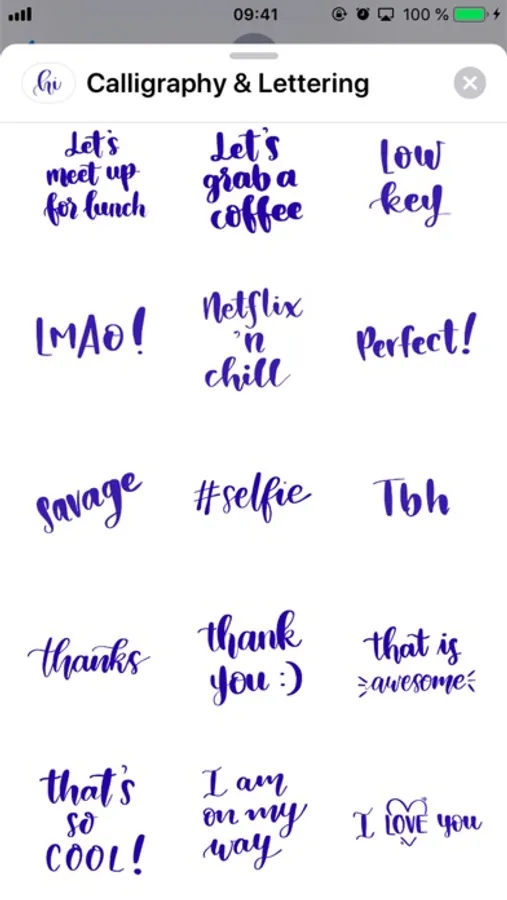 09:41
100 %
hi
Calligraphy & Lettering
Let's
meet up
for lunch
Let's
grab a
coffee
Low
key
LMAO!
Netflix
'n
chill
Perfect!
savage
#selfie
Tbh
thanks
thank
you :)
that is
awesome
that's
so
COOL!
I am
on my
way
I LOVE you